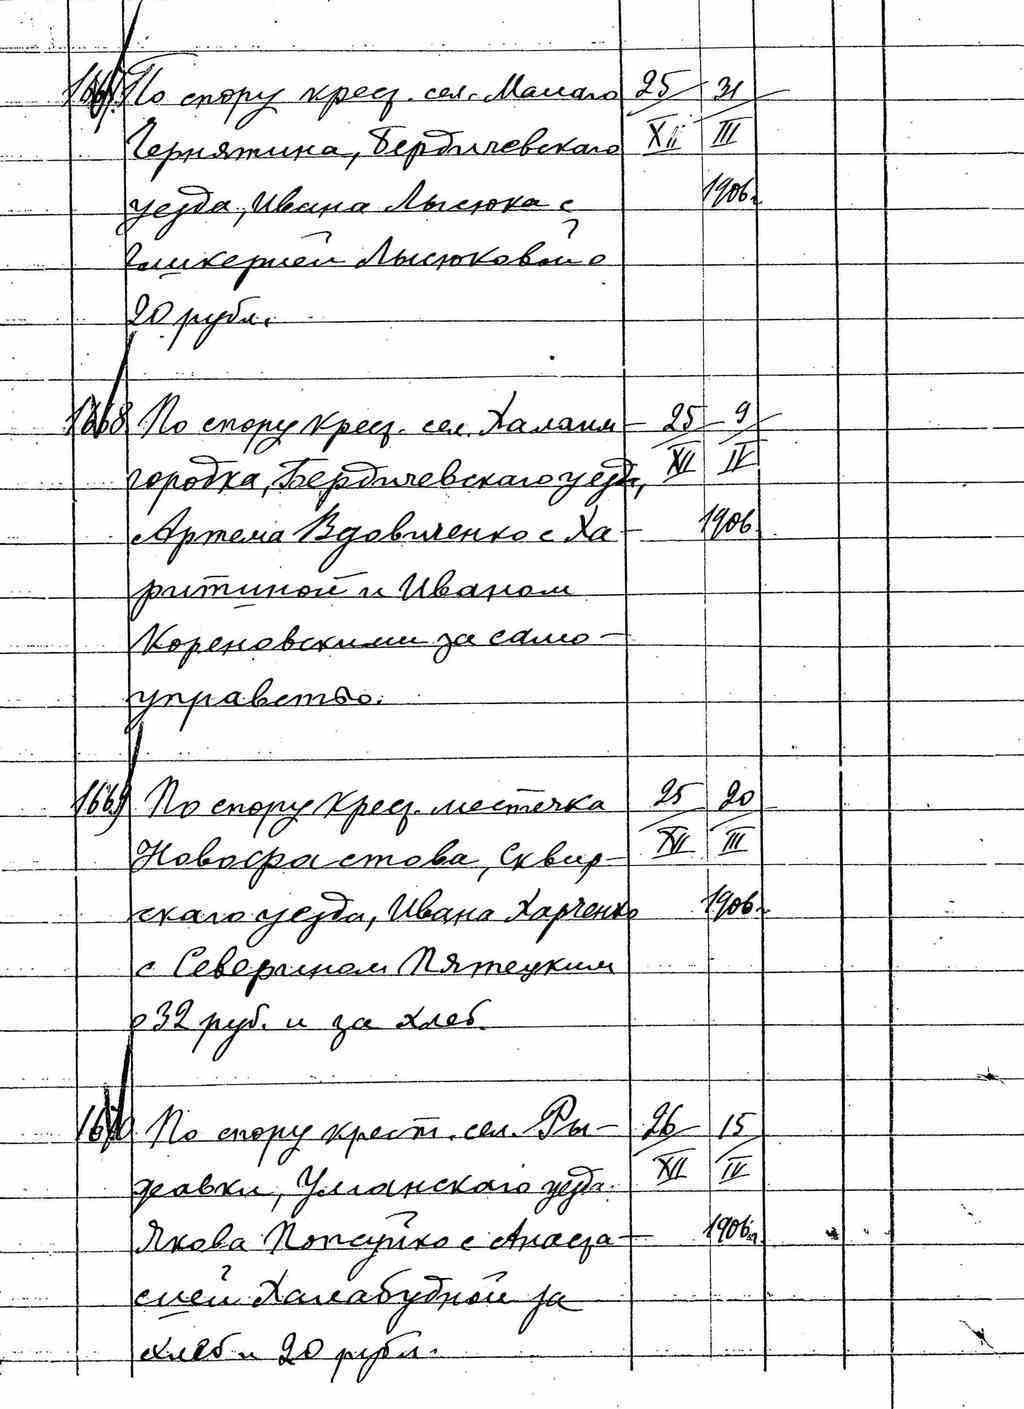 1667. По спору крест. сел. Малаго 25 31
Чернятина, Бердичевскаго XII III
уезда, Ивана Лысюка с 1906г.
Гликерией Лысюковой о
20 рубл.
1668 По спору крест. сел. Халаим- 25 9
городка, Бердичевскаго уезда, XII IV
Артема Вдовиченко с Ха- 1906.
ритиной и Иваном
Кореновскими за само-
управство.
1669 По спору крест. местечка 25 20
Новофастова, Сквир- XII III
скаго уезда, Ивана Харченко 1906г.
с Северином Пятецким
о 32 руб. и за хлеб.
1670 По спору крест. сел. Ры- 26 15
жавки, Уманскаго уезда XII IV
Якова Попсуйко с Анаста- 1906г.
сией Халабудной за
хлеб и 20 рубл.